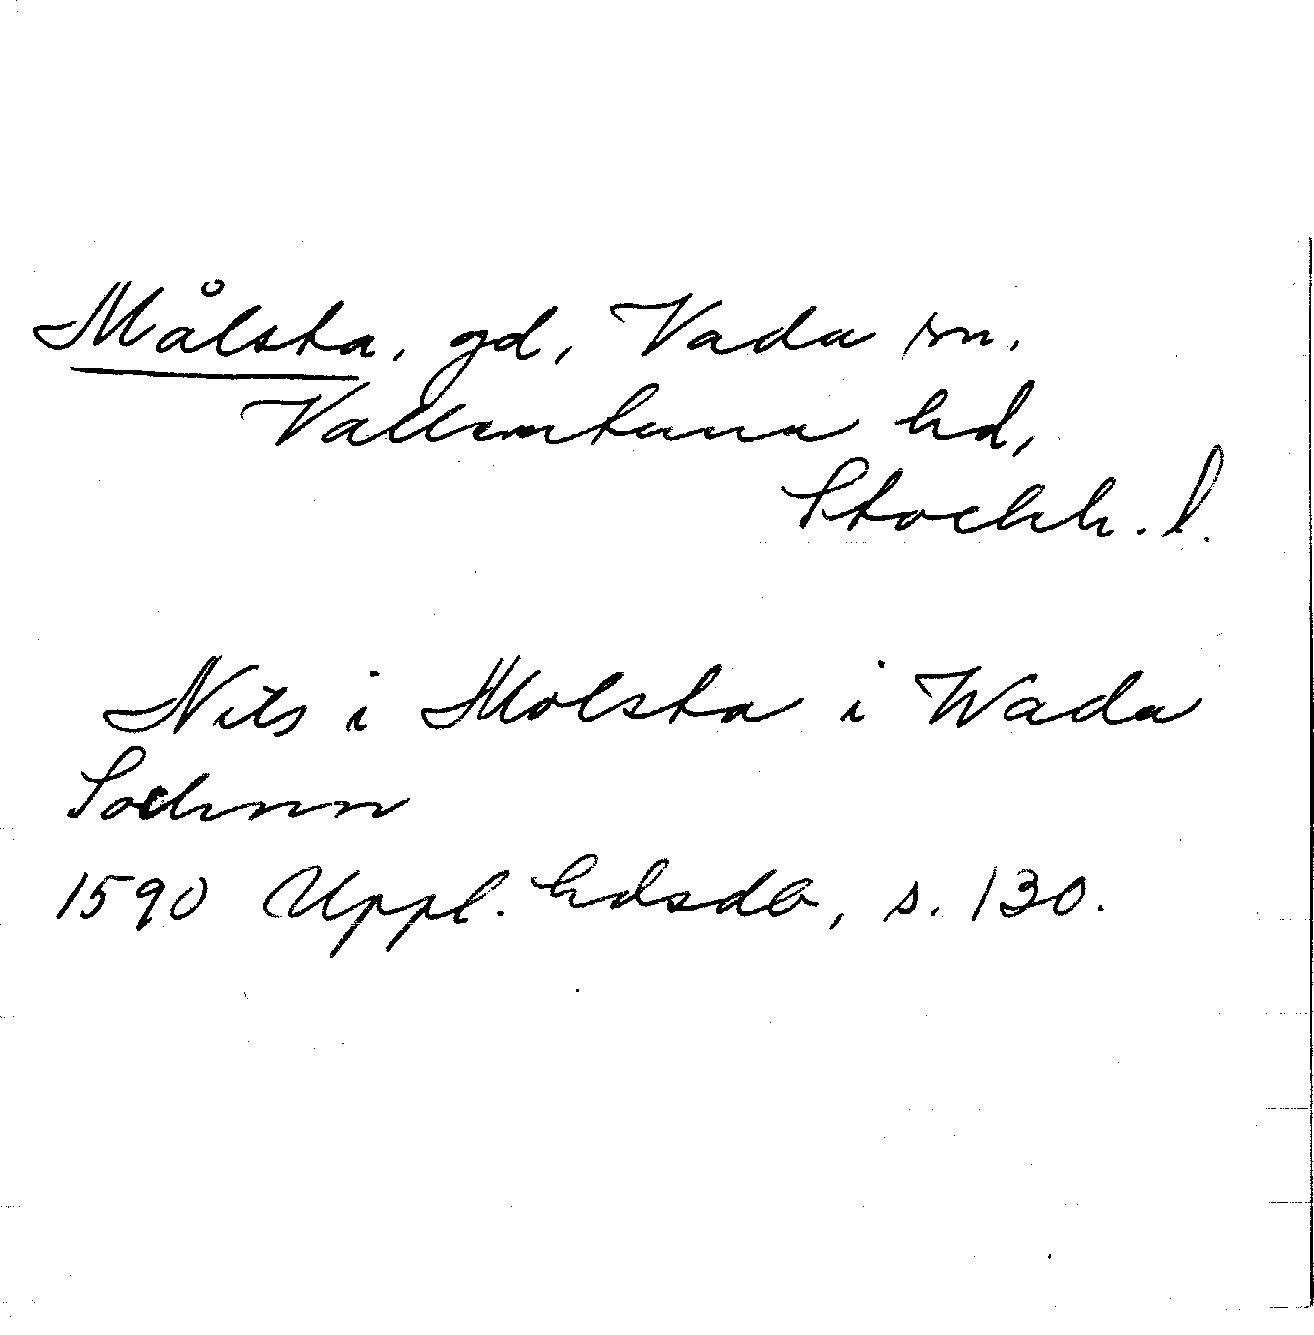 Målsta, gd, Vada sn,
Vallentuna hd,
Stockh. l.
Nils i Molsta i Wada
Sochnn
1590 Uppl. hdsdb, s. 130.